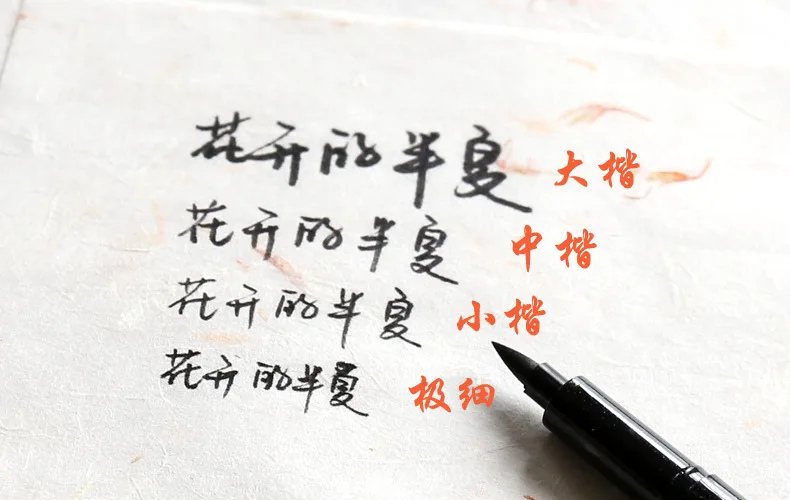 花开的半夏 大楷
花开的半夏 中楷
花开的半夏 小楷
花开的半夏 极细